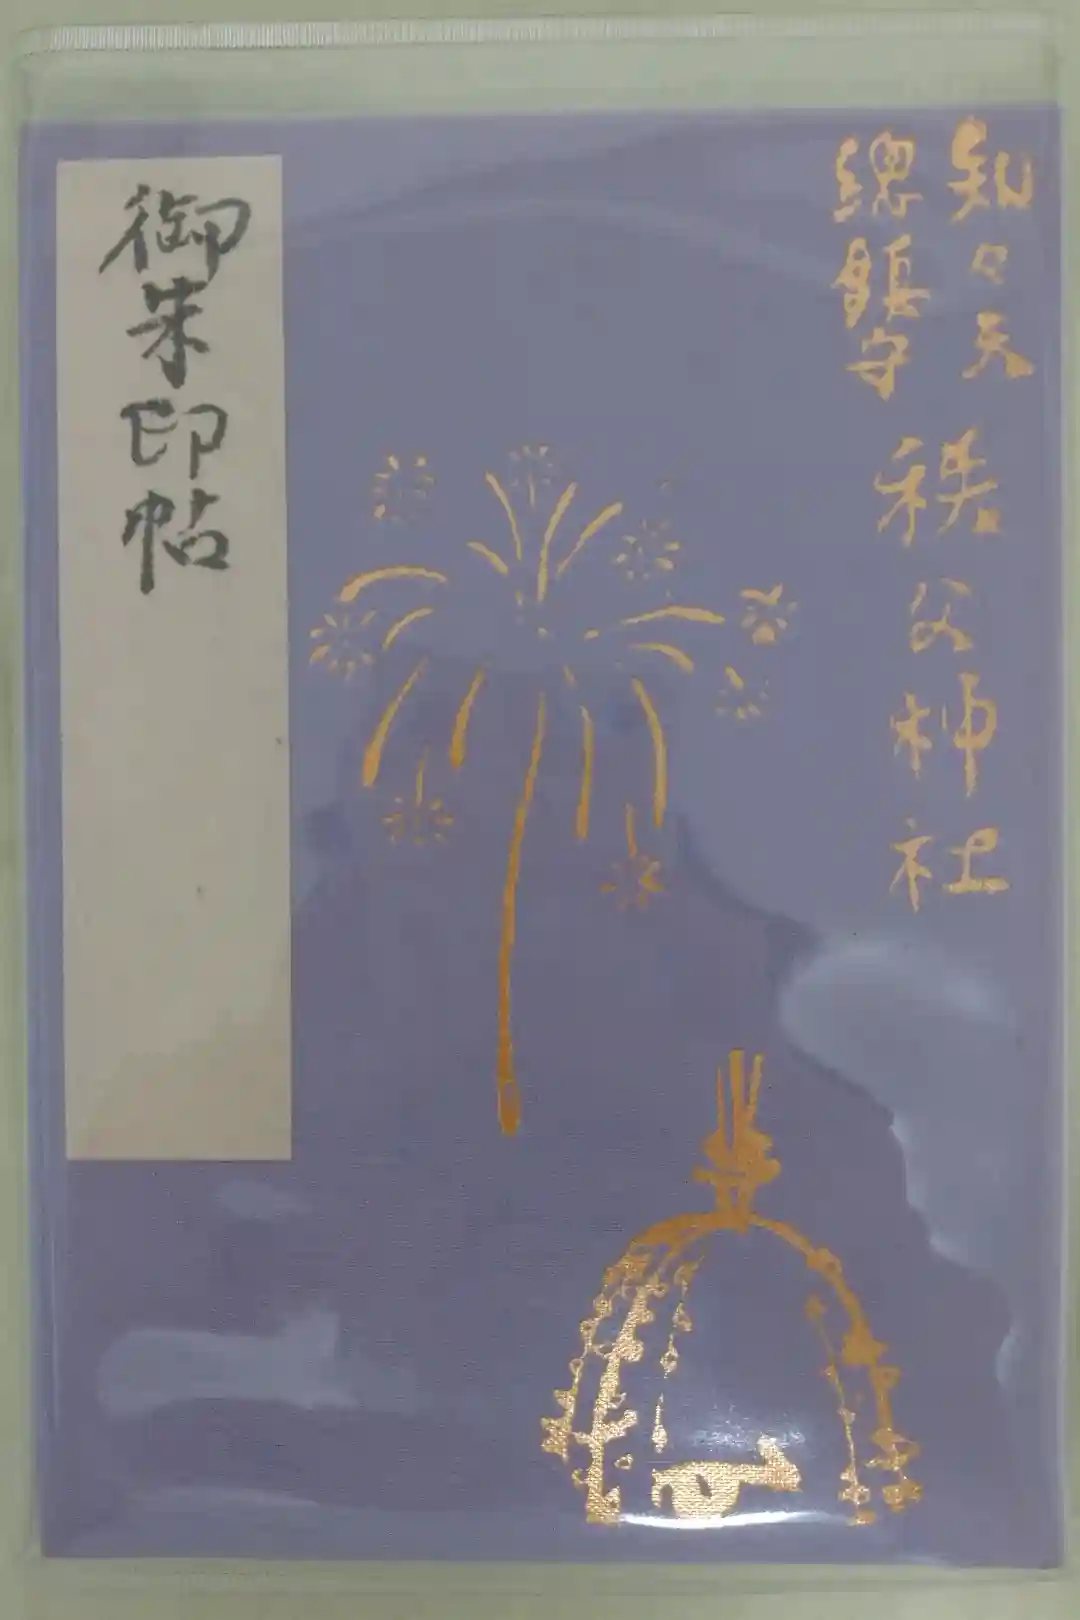 知々夫
總鎮守
秩父神社
御朱印帖